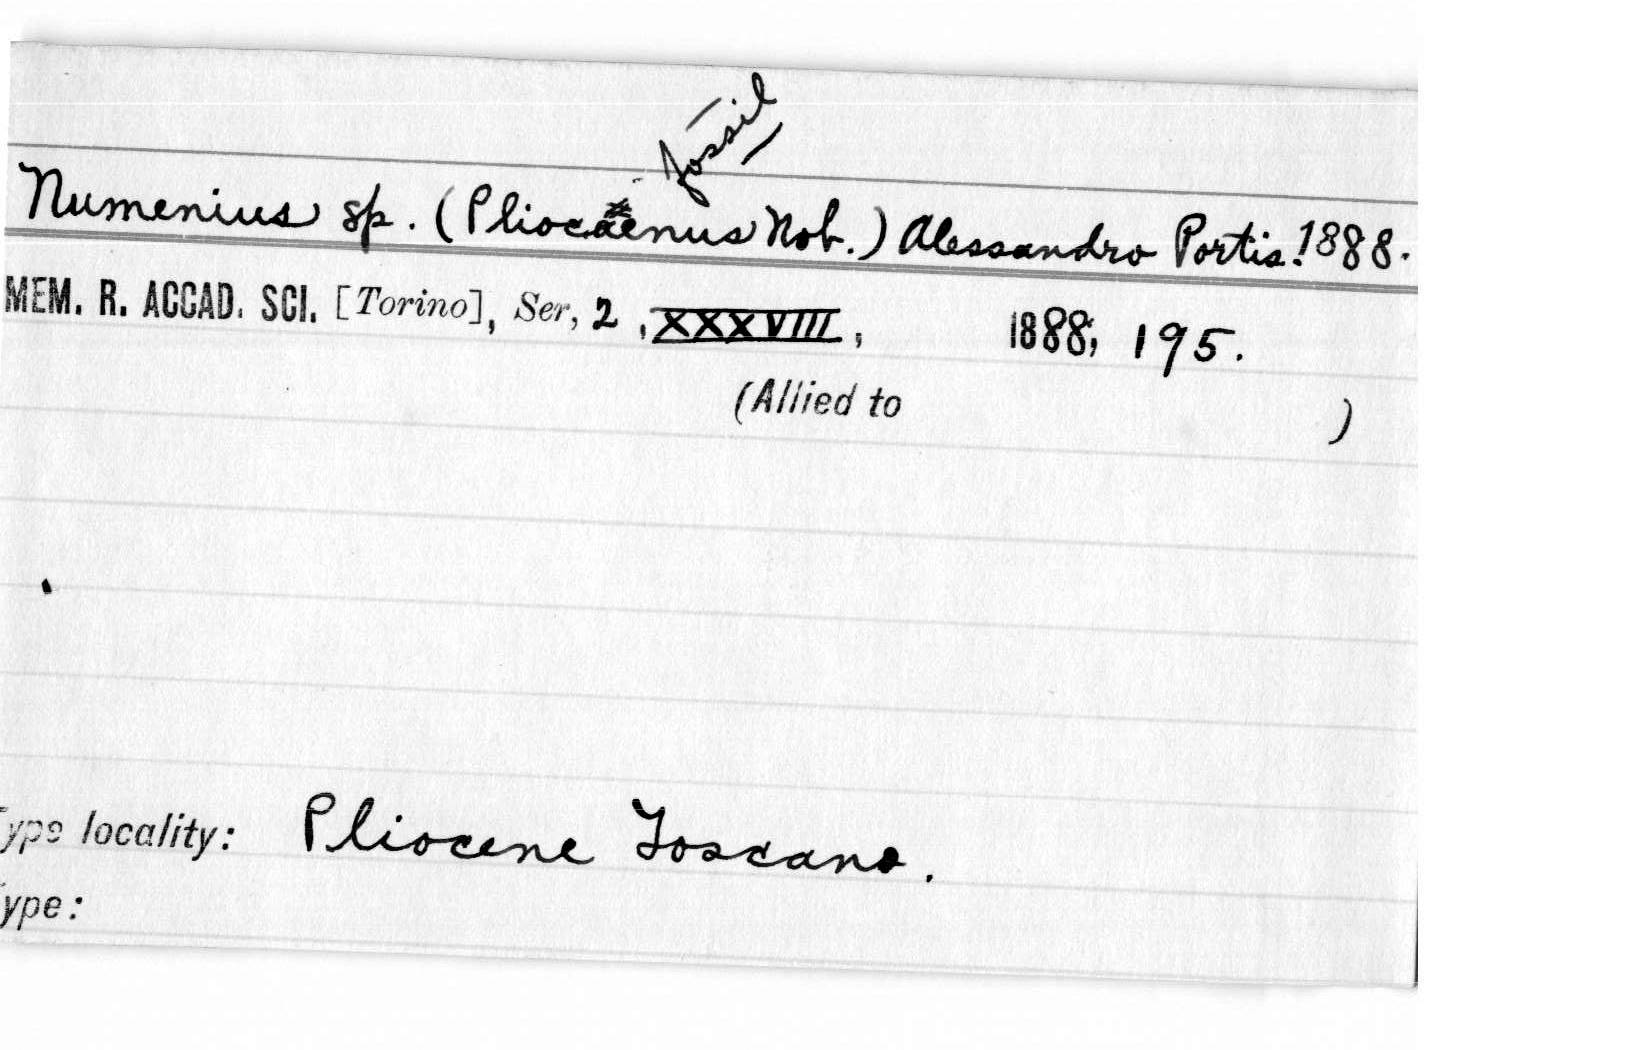 fossil
Numenius sp. (Pliocaenus Nob.) Alessandro Portis. 1888.
MEM. R. ACCAD. SCI. [Torino], Ser, 2, XXXVIII, 1888, 195.
(Allied to )
Type locality: Pliocene Toscano.
Type: